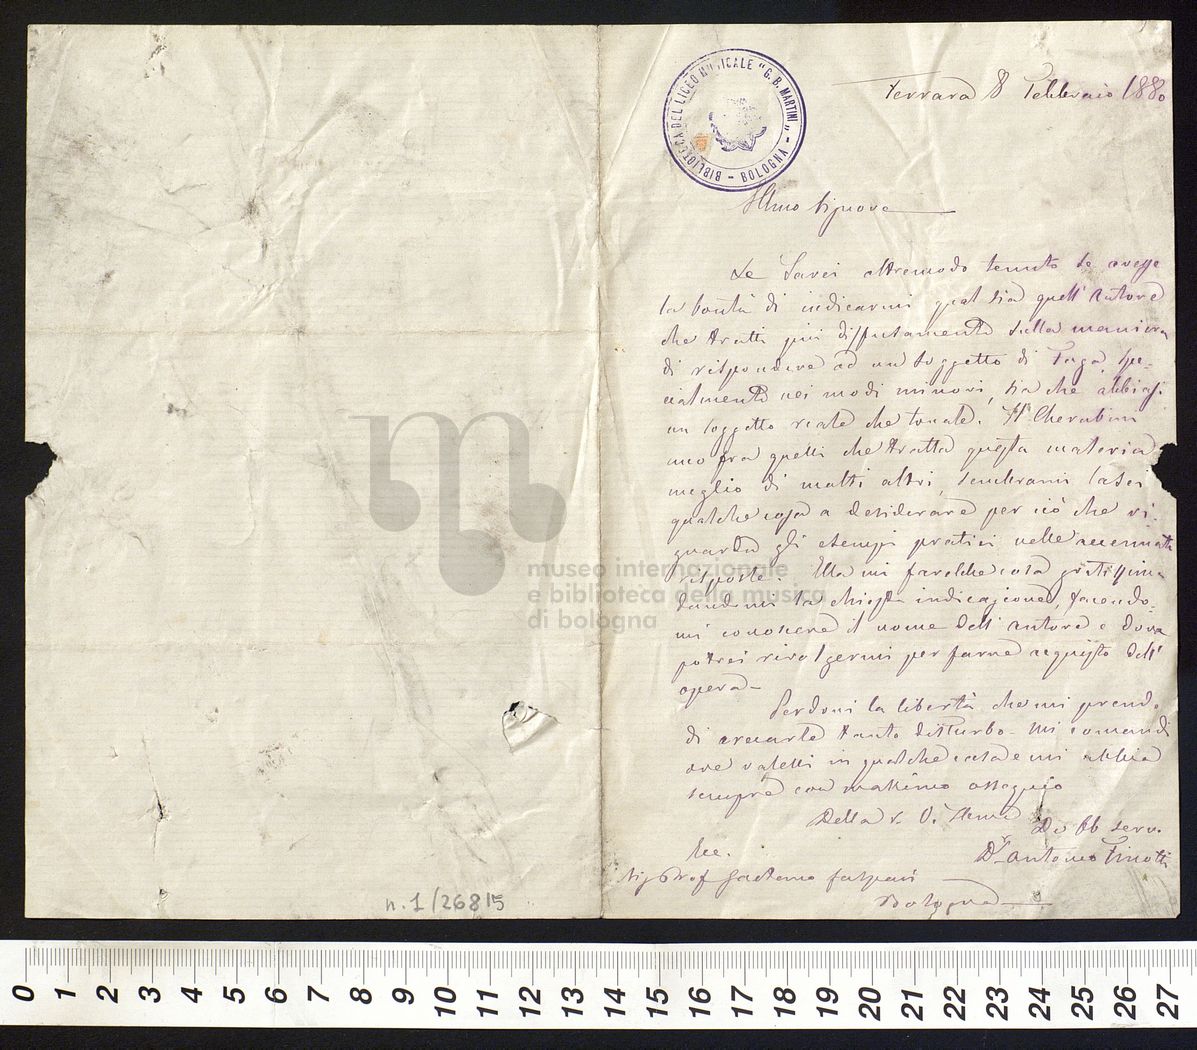 BIBLIOTECA DEL LICEO MUSICALE "G. B. MARTINI" - BOLOGNA -
Ferrara 8 Febbraio 1880
Illmo Signore
Le Sarei oltremodo tenuto se avesse
la bontà di indicarmi qual sia quell'Autore
che tratti più diffusamente sulla maniera
di rispondere ad un Soggetto di Fuga, spe-
cialmente nei modi minori, sia che abbiasi
un soggetto reale che tonale. Il Cherubini
uno fra quelli che tratta questa materia
meglio di molti altri, sembrami lasci
qualche cosa a desiderare per ciò che ri-
guarda gli esempi pratici nelle accennate
risposte. Ella mi farebbe cosa gratissima
dandomi la chiesta indicazione, facendo-
mi conoscere il nome dell'Autore e dove
potrei rivolgermi per farne acquisto dell'
opera -
Perdoni la libertà che mi prendo
di recarle tanto disturbo - Mi comandi
ove valessi in qualche cosa e mi abbia
sempre con massimo ossequio
Della S. V. Illma
Dr Antonio Finotti
Sig Prof Gaetano Gaspari
Bologna
n. 1/26815
museo internazionale
e biblioteca della musica
di bologna
0 1 2 3 4 5 6 7 8 9 10 11 12 13 14 15 16 17 18 19 20 21 22 23 24 25 26 27